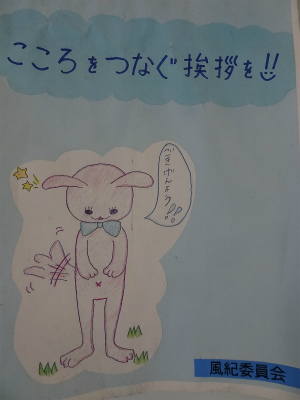 こころをつなぐ挨拶を!!
ごきげんよう!!
風紀委員会